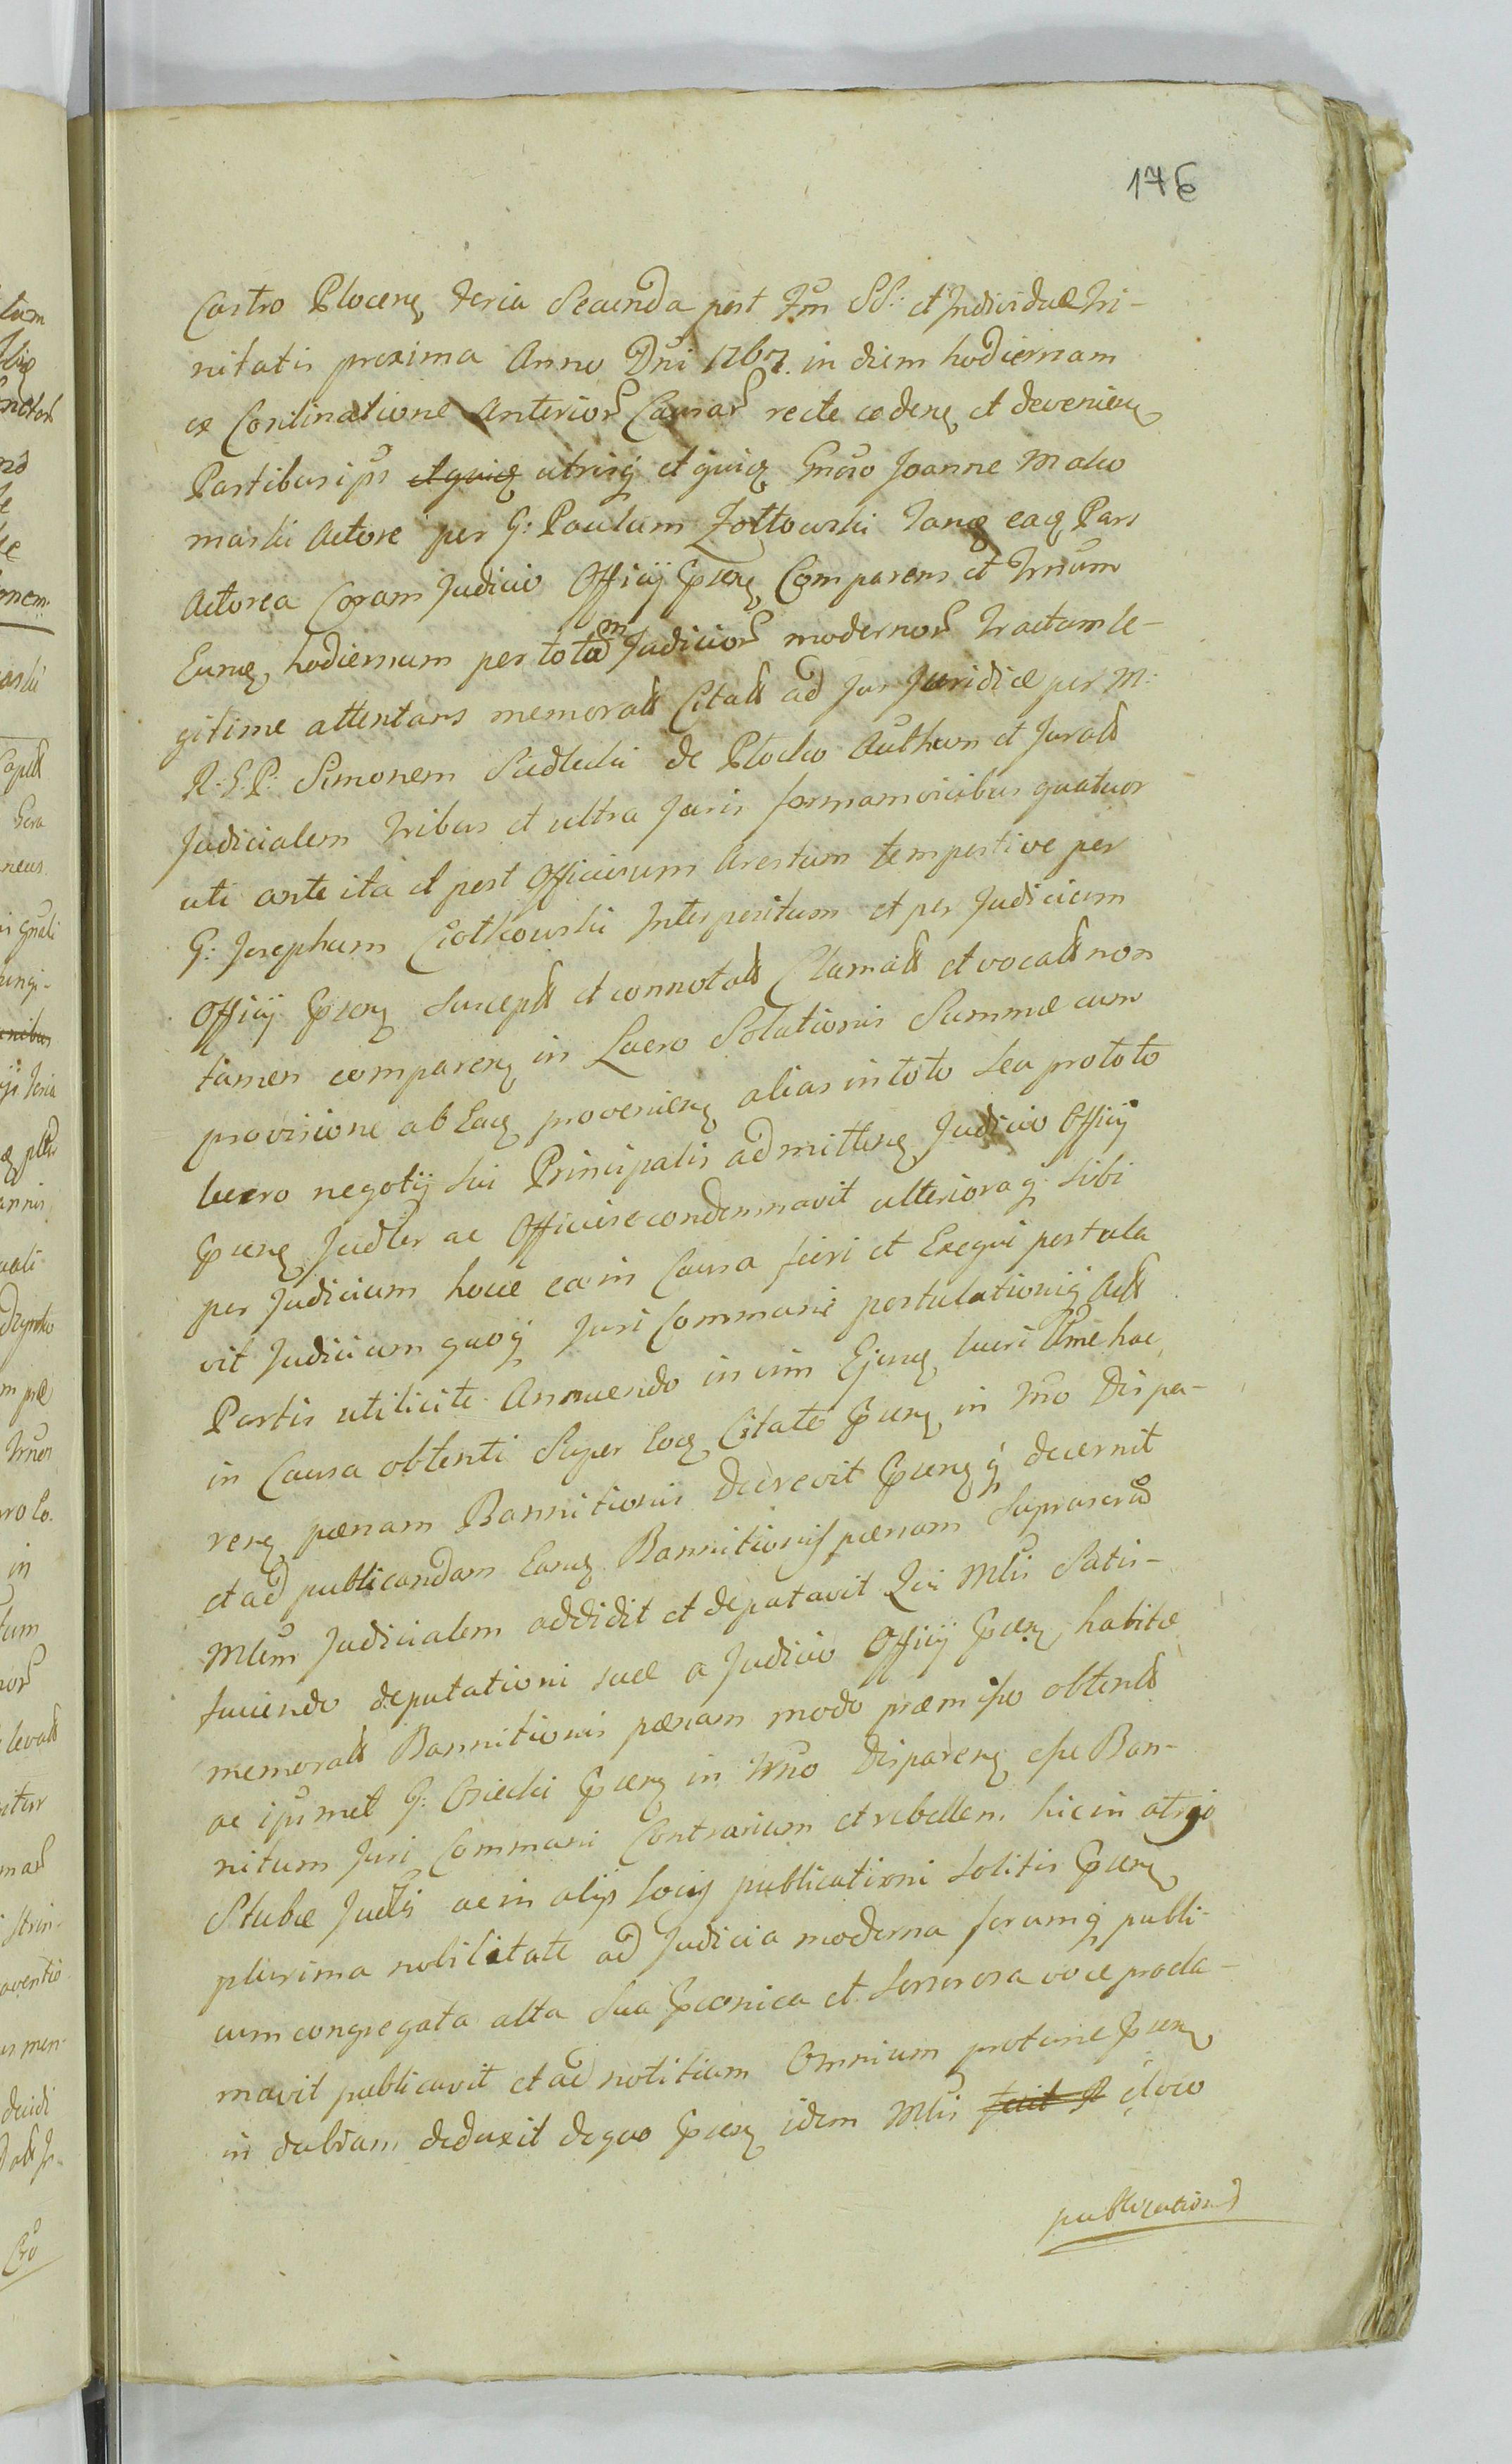 176
Castro Plocenʒ Feria Secunda post Fm̃ SS: et Individuæ Tri-
nitatis proxima Anno Dñi 1767. in diem hodiernam
ex Continatione Anterior Causar recte cadenʒ et devenienʒ
Partibus ips et quiꝫ utrisq et quiꝫ Gñoso Joanne Mako
maski Actore per G: Paulum Zołtowski Tanꝫ eaꝫ Pars
Actorea Coram Judicio Officij Pñsenʒ Comparens et Trñum
Eunꝫ hodiernum per totam Judicior modernor Tractum le-
gitime attentans memorat Citat ad Jus Juridice per M:
R. S. P: Simonem Siedlecki de Plocko Authen et Jurat
Judicialem tribus et ultra Juris forma vicibus quatuor
uti ante ita et post Officiosum Arestum tempestive per
G: Josephum Ciotkowski Interpositum et per Judicium
Officij Pñsenʒ suscept et connotat Clamat et vocat non
tamen comparenʒ in Lucro Solutionis Summæ cum
provisione ab Eaꝫ provenienʒ alias in toto seu pro toto
lucro negotij sui Principalis admittenʒ Judicio Officij
Pñsenʒ Judlr ac Officiose condemnavit ulterioraq sibi
per Judicium hocce ea in Causa fieri et Exequi postula
vit Judicium quoq Juri Communi postulationiq Act
Partis utilicite Annuendo in vim Ejusꝫ lucri Ultme hac
in Causa obtenti Super Eoꝫ Citato Pñsenʒ in Trño Dispa-
renʒ pœnam Bannitionis Decrevit Pñsenʒq decernit
et ad publicandam Eamꝫ Bannitionis pœnam Suprascrtũ
Mlem Judicialem addidit et deputavit Qui Mlis Satis-
faciendo deputationi suæ a Judicio Officij Pñsenʒ habitæ
memorat Bannitionis pœnam modo præmisso obtent
ac ipsmet G: Osiecki Pñsenʒ in Trño Disparenʒ esse Ban-
nitum Juri Communi Contrarium et rebellem hic in atrio
Stubæ Judlis ac in alijs locis publicationi solitis Pñsenʒ
plurima nobilitate ad Judicia moderna forumq publi-
cum congregata alta Sua Præconica et Sonorosa voce procla-
mavit publicavit et ad notitiam Omnium protunc Pñsenʒ
in dubiam deduxit de quo Pñsenʒ idem Mlis fecit et loco
publication